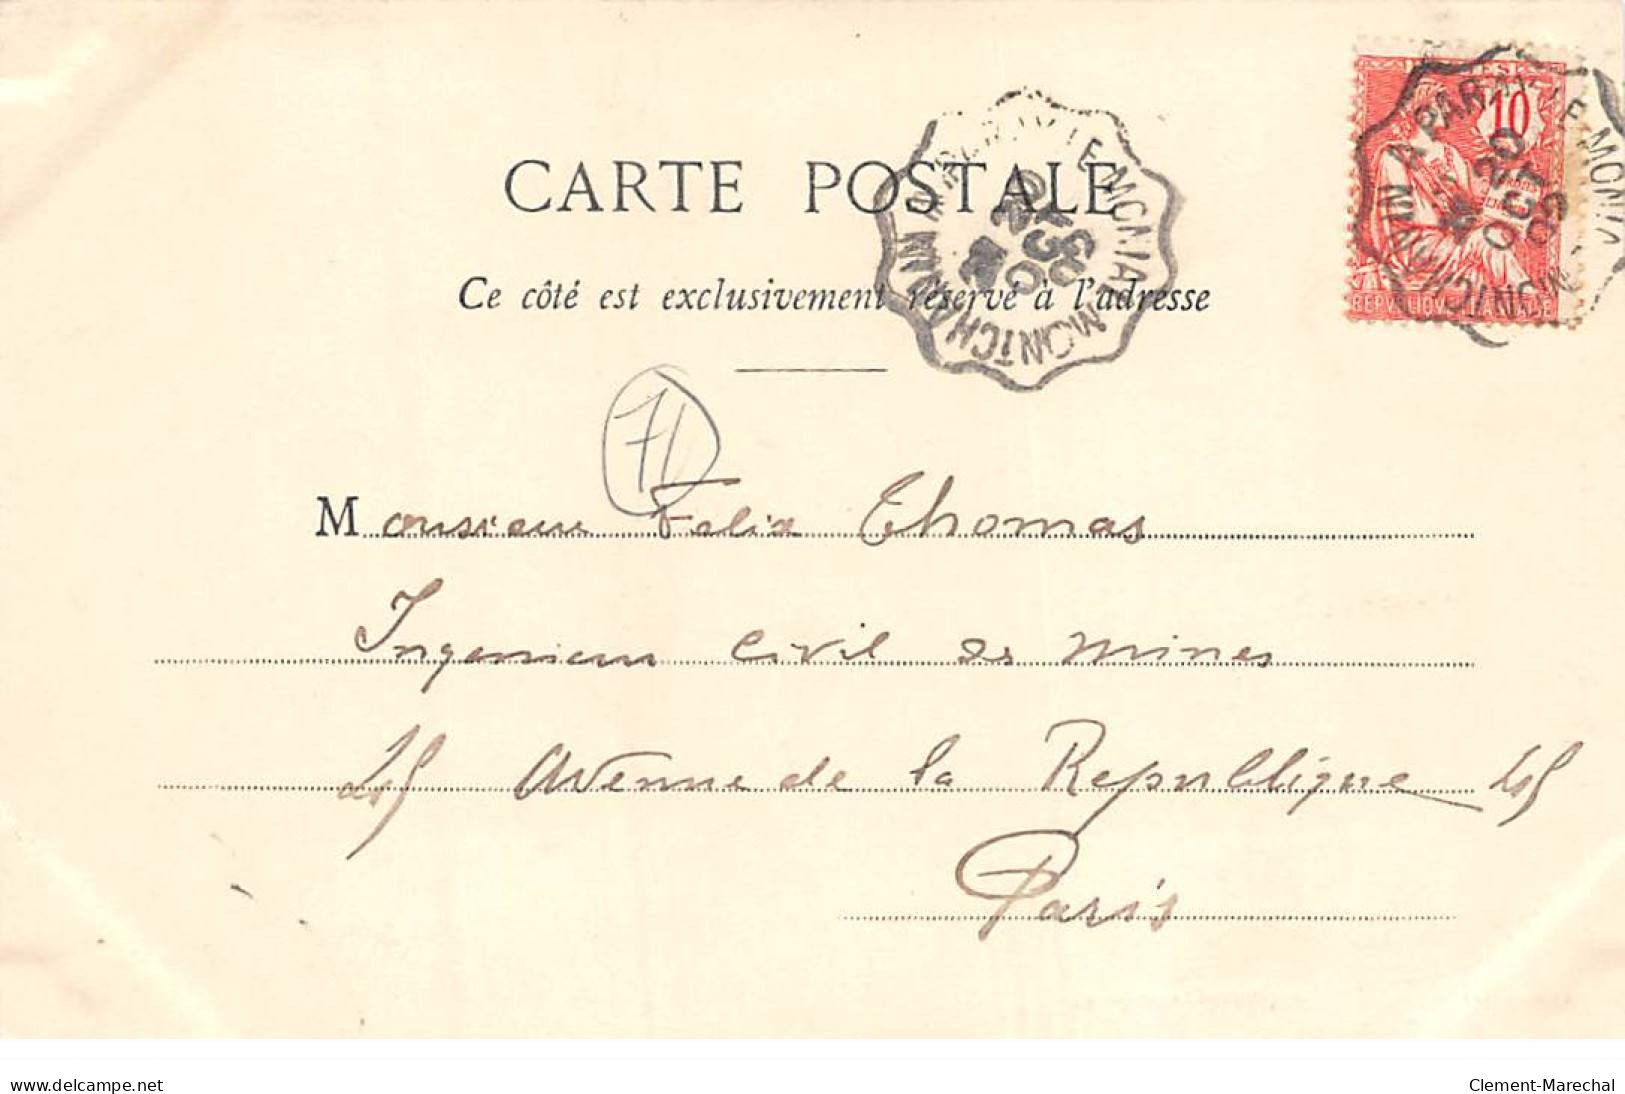 CARTE POSTALE
Ce côté est exclusivement réservé à l'adresse
MONTCHANIN A PARAY-LE-MONIAL
20
OCT
03
10
MONTCHANIN A PARAY-LE-MONIAL
20
OCT
03
71
Monsieur Felix Thomas
Ingenieur Civil des mines
Avenue de la Republique
Paris
delcampe.net
Clement-Marechal